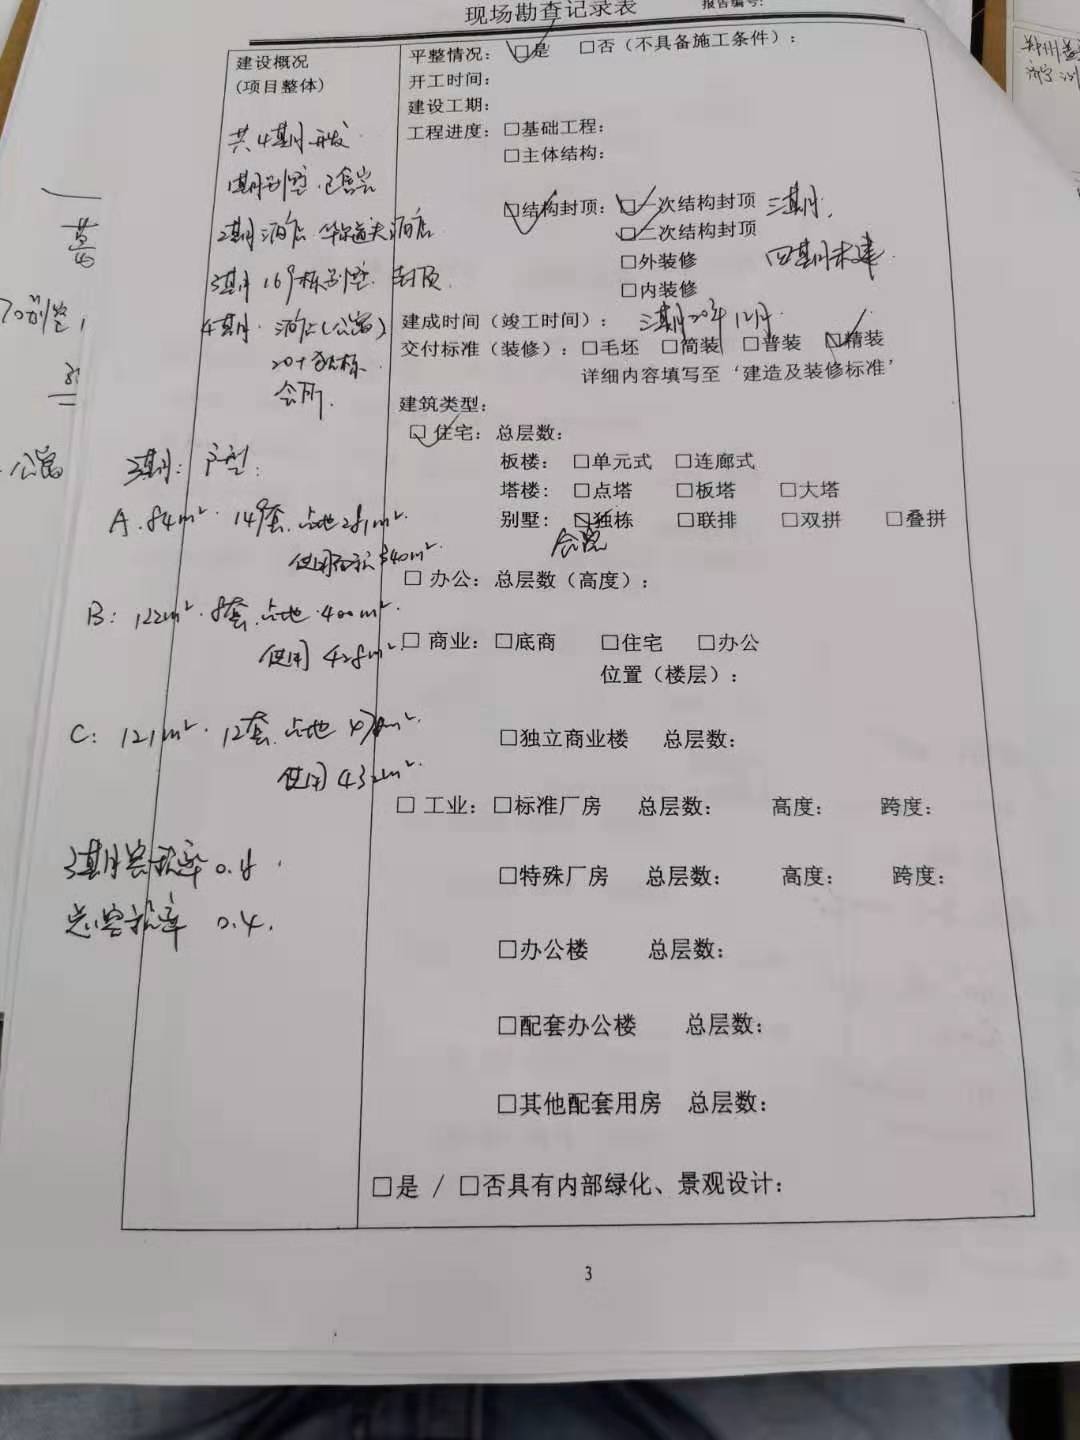 现场勘查记录表
报告编号:
建设概况
(项目整体)
共4期开发
1期别墅.已售完
2期酒店 华尔道夫酒店
3期 169栋别墅 封顶
4期. 酒店(公寓)
20+独栋.
会所.
3期: 户型:
A.84m². 149套.占地281m².
使用面积340m².
B: 122m².8套.占地.400m².
使用428m².
C: 121m².12套.占地
使用432m².
3期容积率0.4
总容积率 0.4.
平整情况: ☑是 □否(不具备施工条件):
开工时间:
建设工期:
工程进度: □基础工程:
□主体结构:
☑结构封顶: ☑一次结构封顶 三期.
☑二次结构封顶
□外装修 四期未建.
□内装修
建成时间(竣工时间): 三期20年12月.
交付标准(装修): □毛坯 □简装 □普装 ☑精装
详细内容填写至‘建造及装修标准’
建筑类型:
☑ 住宅: 总层数:
板楼: □单元式 □连廊式
塔楼: □点塔 □板塔 □大塔
别墅: ☑独栋 □联排 □双拼 □叠拼
□ 办公: 总层数(高度):
□ 商业: □底商 □住宅 □办公
位置(楼层):
□独立商业楼 总层数:
□ 工业: □标准厂房 总层数: 高度: 跨度:
□特殊厂房 总层数: 高度: 跨度:
□办公楼 总层数:
□配套办公楼 总层数:
□其他配套用房 总层数:
□是 / □否具有内部绿化、景观设计:
3
70别墅
公寓
郑州
济宁